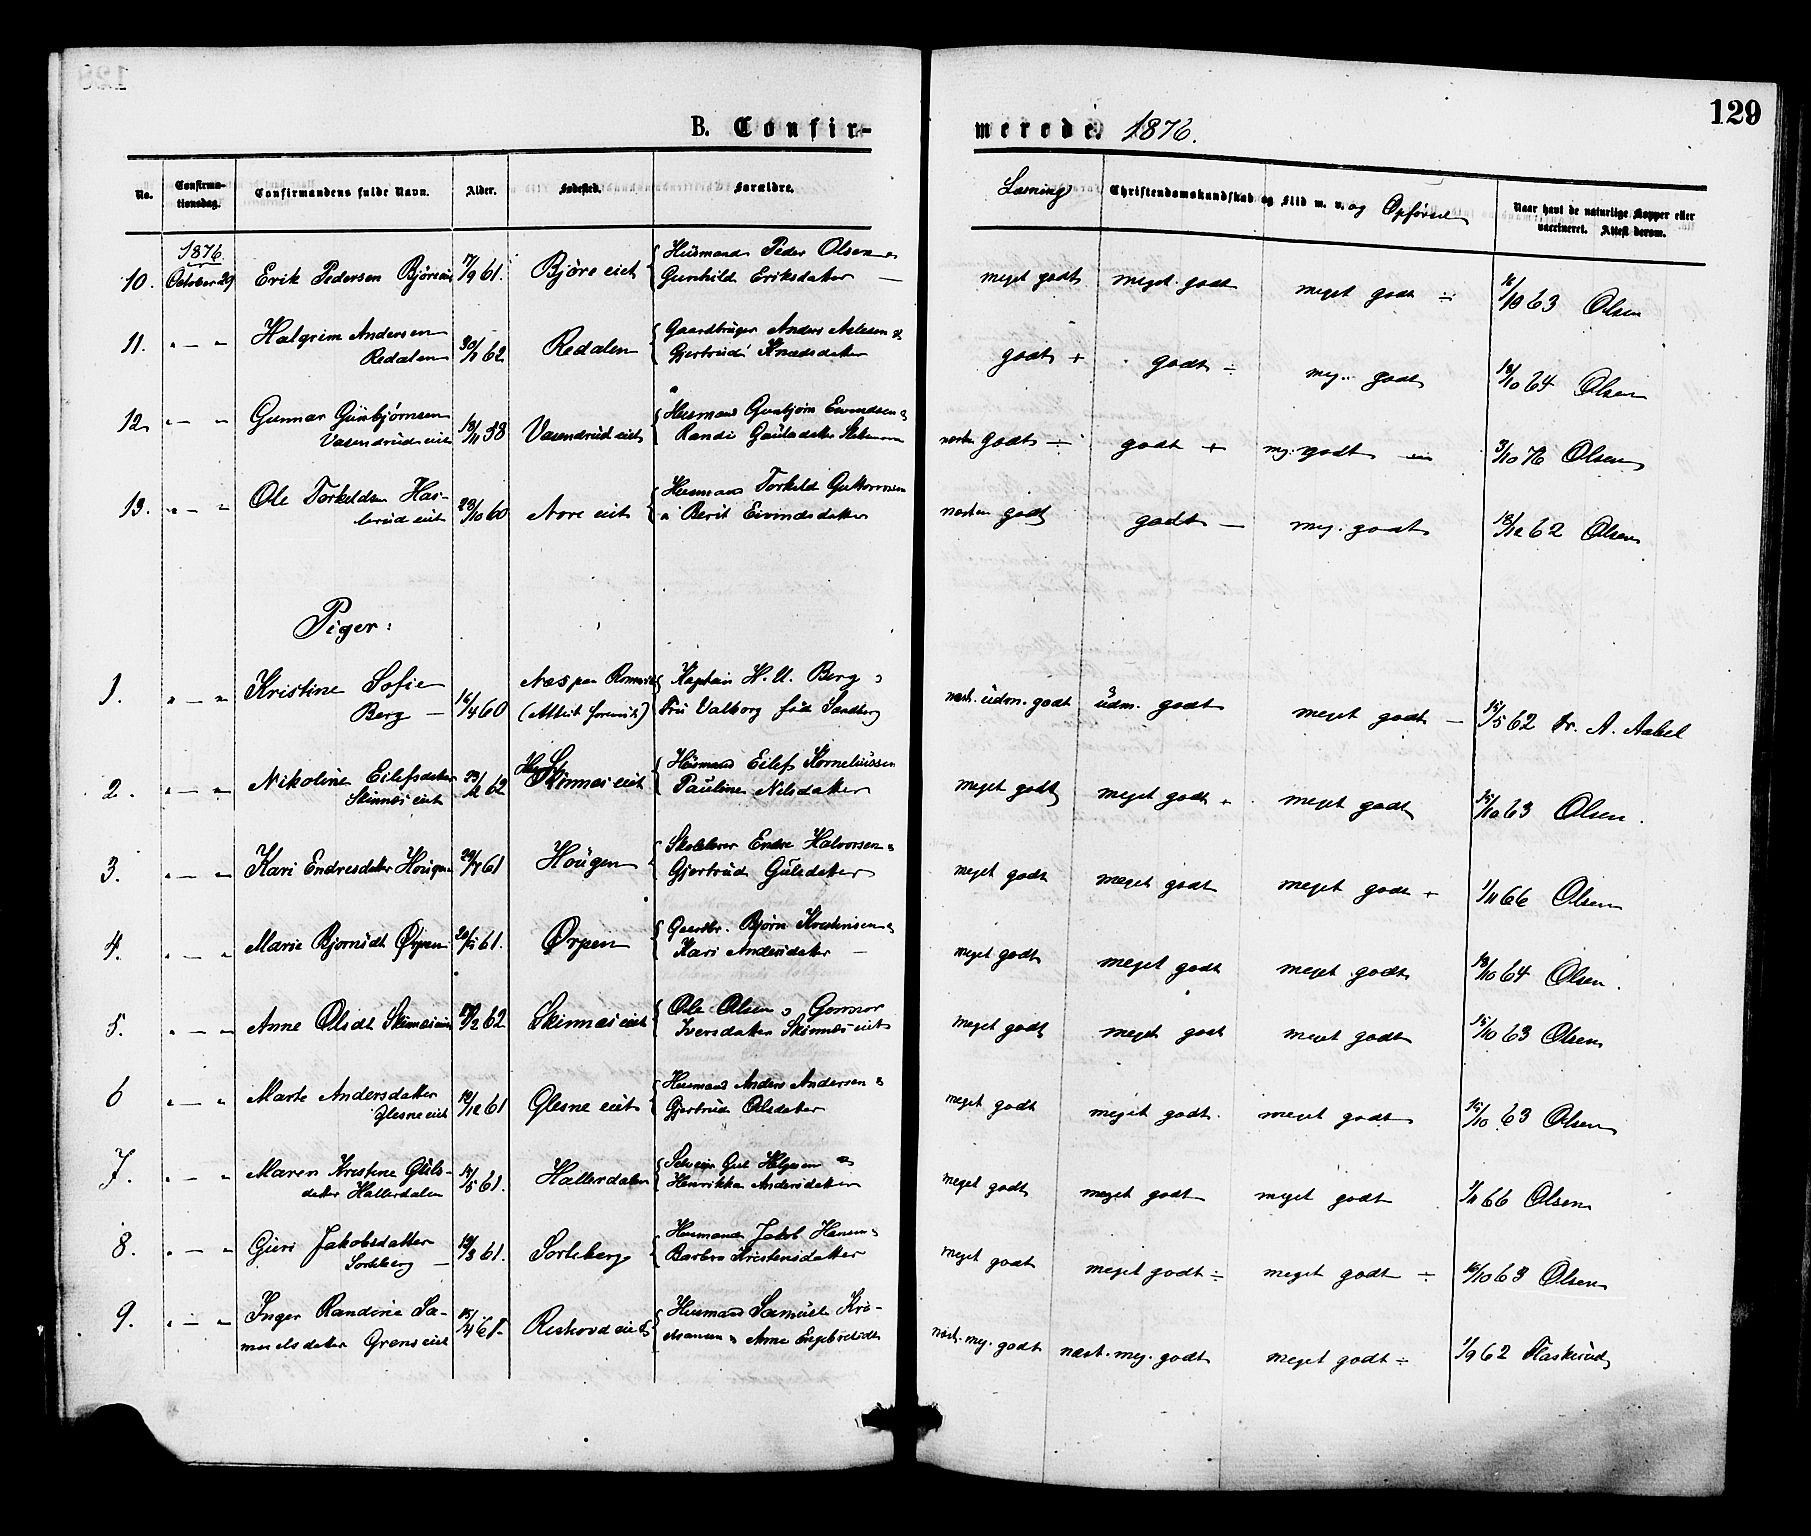 129
B. Confir-
merede. 1876.
No.
Confirma-
tionsdag.
Confirmandens fulde Navn.
Alder.
Fødested.
Forældre.
Læsning
Christendomskundskab og Flid m. v. og Opførsel
Naar havt de naturlige Kopper eller
vaccineret. Attest derom.
1876.
10. October 29 Erik Pedersen Bjøreeiet 17/9 61. Bjøre eiet Husmand Peder Olsen &
Gunhild Eriksdatter —
meget godt meget godt meget godt ÷ /10 63 Olsen
11. " — " Halgrim Andersen
Redalen 30/1 62 Redalen Gaardbruger Anders Aslesen &
Gjertrud Knudsdatter
godt + godt ÷ meg. godt 18/10 64 Olsen
12 " — " Gunnar Gunbjørnsen
Vasendrud eiet 13/11 58 Vasendrud eiet Husmand Gunbjørn Eivindsen &
Randi
næsten godt ÷ godt + meg. godt — 3/10 76 Olsen
13. " — " Ole Torkildsen Has-
lerud eiet 29/10 60 Nore eiet Husmand Torkild Guttormsen
& Berit Eivindsdatter
næsten godt godt — meg. godt 18/12 62 Olsen
Piger:
1. " — " Kristine Sofie
Berg — 16/4 60 Næs paa
(Attest foreviist) Kaptain H. U. Berg &
Fru Valborg fød Sandberg
næst. udm. godt udm. godt meget godt — 14/5 62 Dr. A. Aabel
2. " — " Nikoline Eilefsdatter
Skinnes eiet 23/12 62 Skinnes eiet Husmand Eilef Korneliussen
Pauline Nilsdatter
meget godt meget godt + meget godt 15/10 63 Olsen.
3. " — " Kari Endresdatter Hougen 29/7 61 Hougen Skolelærer Endre Halvorsen &
Gjertrud Gulsdatter
meget godt meget godt meget godt + 1/11 66 Olsen
4. " — " Marie Bjørnsdt Ørpen 26/5 61. Ørpen Gaardbr. Bjørn Kristensen &
Kari Andersdatter —
meget godt meget godt meget godt 18/10 64 Olsen.
5. " — " Anne Olsdt Skinnes eiet /2 62 Skinnes eiet Ole Olsen & Gonnor
Iversdatter Skinnes eiet
meget godt meget godt meget godt 15/10 63 Olsen
6 " — " Marte Andersdatter
Glesne eiet 19/12 61 Glesne eiet Husmand Anders Andersen &
Gjertrud Olsdatter
meget godt meget godt. meget godt 15/10 63 Olsen
7. " — " Maren Kristine Guls-
datter Hallerdalen 14/5 61. Hallerdalen Selveier Gul Helgesen &
Henrikka Andersdatter
meget godt meget godt meget godt 1/11 66 Olsen
8. " — " Guri Jakobsdatter
Sorteberg — 19/3 61. Sorteberg Husmand Jakob Hansen &
Barbra Kristensdatter
meget godt meget godt ÷ meget godt ÷ 16/10 63 Olsen
9. " — " Inger Randine Sa-
muelsdatter Grøns eiet 15/4 61. Reskovd eiet Husmand Samuel Kri-
stiansen & Anne Engebretsdt
næst. meg. godt næst. meg. godt meget godt ÷ 1/9 62 Flaskerud